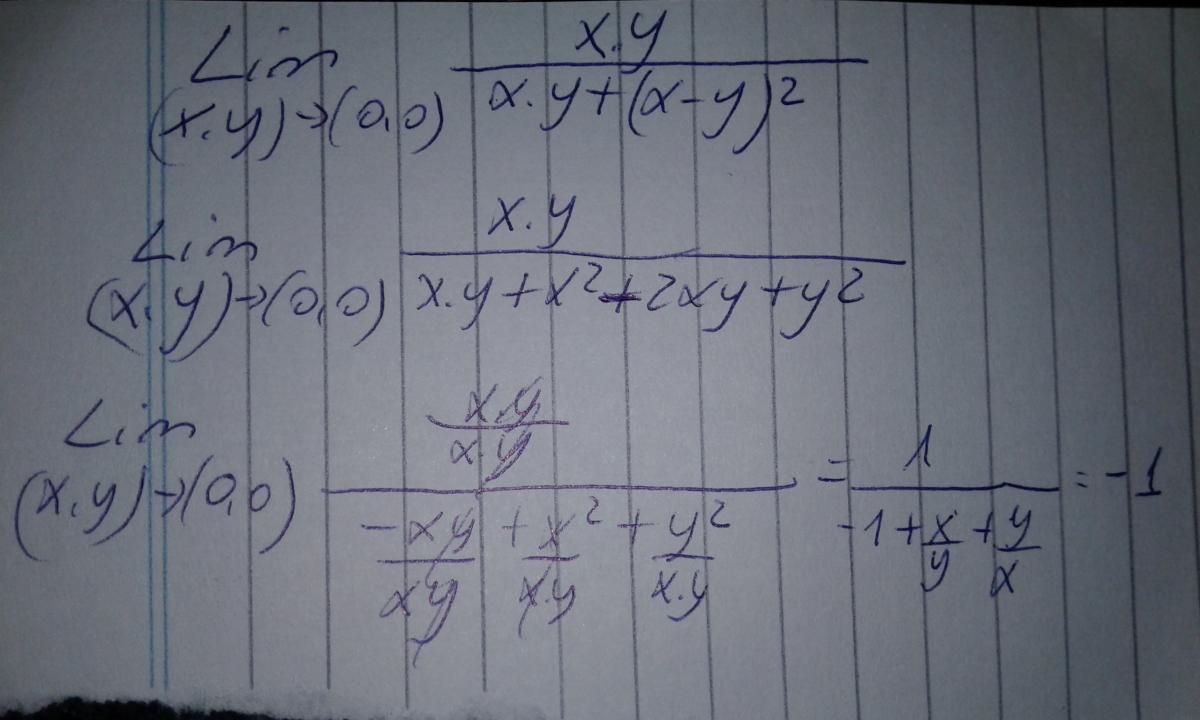 Lim (x.y)→(0,0) x.y / x.y+(x-y)²
Lim (x.y)→(0,0) x.y / x.y+x²-2xy+y²
Lim (x.y)→(0,0) (x.y / x.y) / (-xy / xy + x² / x.y + y² / x.y) = 1 / (-1 + x / y + y / x) = -1